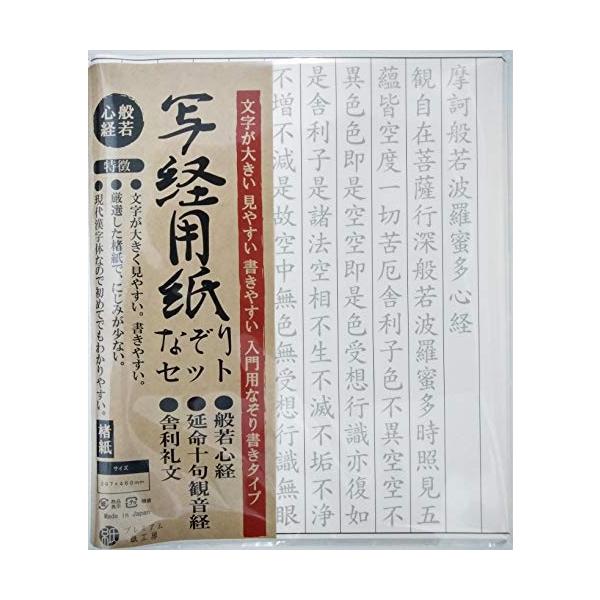 摩訶般若波羅蜜多心経
観自在菩薩行深般若波羅蜜多時照見五
蘊皆空度一切苦厄舎利子色不異空空不
異色色即是空空即是色受想行識亦復如
是舎利子是諸法空相不生不滅不垢不浄
不増不減是故空中無色無受想行識無眼
文字が大きい 見やすい 書きやすい 入門用なぞり書きタイプ
写経用紙
なぞり
セット
●般若心経
●延命十句観音経
●舎利礼文
般若
心経
特徴
●文字が大きく見やすい。書きやすい。
●厳選した楮紙で、にじみが少ない。
●現代漢字体なので初めてでもわかりやすい。
楮紙
サイズ
Made in Japan
紙
プレミアム
紙工房